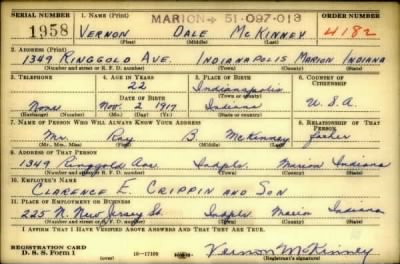 SERIAL NUMBER 1. NAME (Print) MARION 51-097-013 ORDER NUMBER
1958 VERNON DALE McKINNEY 4182
(First) (Middle) (Last)
2. ADDRESS (Print)
1349 RINGGOLD AVE. INDIANAPOLIS MARION INDIANA
(Number and street or R. F. D. number) (Town) (County) (State)
3. TELEPHONE 4. AGE IN YEARS 5. PLACE OF BIRTH 6. COUNTRY OF CITIZENSHIP
22 Indianapolis
DATE OF BIRTH (Town or county)
None Nov. 2 1917 Indiana U.S.A.
(Exchange) (Number) (Mo.) (Day) (Yr.) (State or country)
7. NAME OF PERSON WHO WILL ALWAYS KNOW YOUR ADDRESS 8. RELATIONSHIP OF THAT PERSON
Mr. Ray B. McKinney father
(Mr., Mrs., Miss) (First) (Middle) (Last)
9. ADDRESS OF THAT PERSON
1349 Ringgold Ave Indpls. Marion Indiana
(Number and street or R. F. D. number) (Town) (County) (State)
10. EMPLOYER'S NAME
CLARENCE E. CRIPPIN AND SON
11. PLACE OF EMPLOYMENT OR BUSINESS
225 N. New Jersey St. Indpls. Marion Indiana
(Number and street or R. F. D. number) (Town) (County) (State)
I AFFIRM THAT I HAVE VERIFIED ABOVE ANSWERS AND THAT THEY ARE TRUE.
REGISTRATION CARD
D. S. S. Form 1 16-17105 Vernon McKinney
(Registrant's signature)